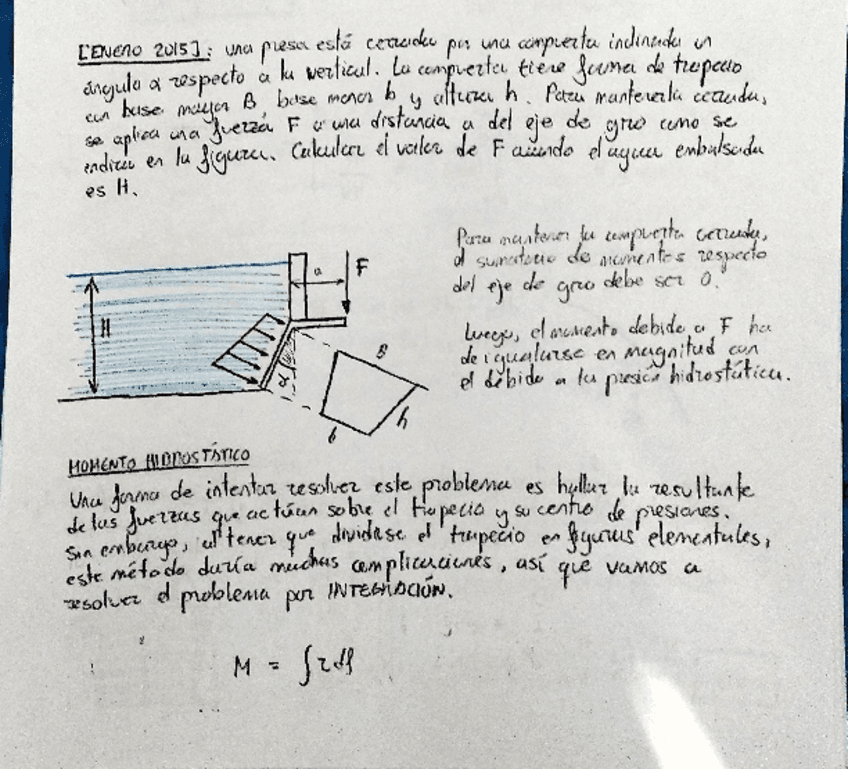 [ENERO 2015]: una presa está cerrada por una compuerta inclinada un
ángulo α respecto a la vertical. La compuerta tiene forma de trapecio
con base mayor B base menor b y altura h. Para mantenerla cerrada,
se aplica una fuerza F a una distancia a del eje de giro como se
indica en la figura. Calcular el valor de F cuando el agua embalsada
es H.
Para mantener la compuerta cerrada,
el sumatorio de momentos respecto
del eje de giro debe ser 0.
Luego, el momento debido a F ha
de igualarse en magnitud con
el debido a la presión hidrostática.
a
F
H
α
B
b
h
MOMENTO HIDROSTÁTICO
Una forma de intentar resolver este problema es hallar la resultante
de las fuerzas que actúan sobre el trapecio y su centro de presiones.
Sin embargo, al tener que dividirse el trapecio en figuras elementales,
este método daría muchas complicaciones, así que vamos a
resolver el problema por INTEGRACIÓN.
M = ∫ r df